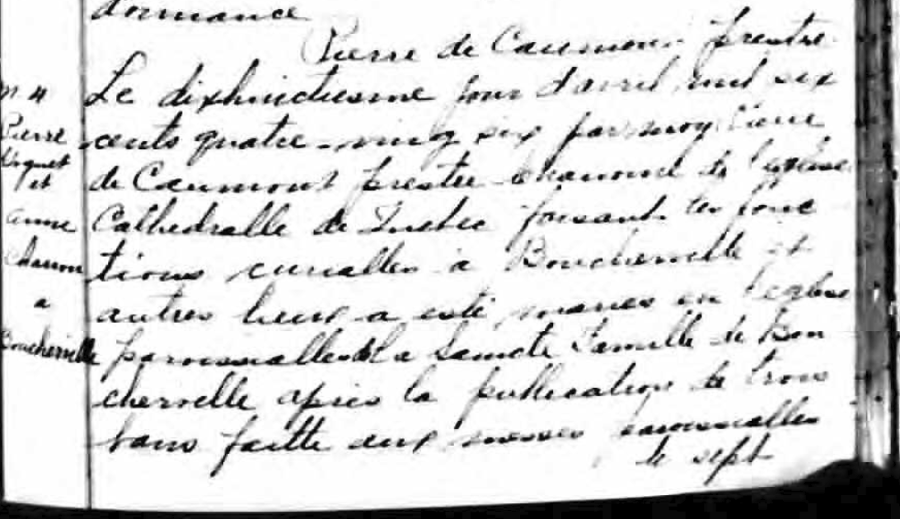 dormance
Pierre de Caumont prestre
Le dixhuictiesme jour d'avril mil six
cents quatre-ving six par moy Pierre
de Caumont prestre chanoine de l'eglise
Cathedralle de Quebec faisant les fonc
tions curialles à Boucherville et
autres lieux a esté maries en l'eglise
paroissialle de la Saincte Famille de Bou
cherville apres la publication de trois
bans faitte aux messes paroissialles
le sept
m. 4
Pierre
et
Anne
Charon
a
Boucherville